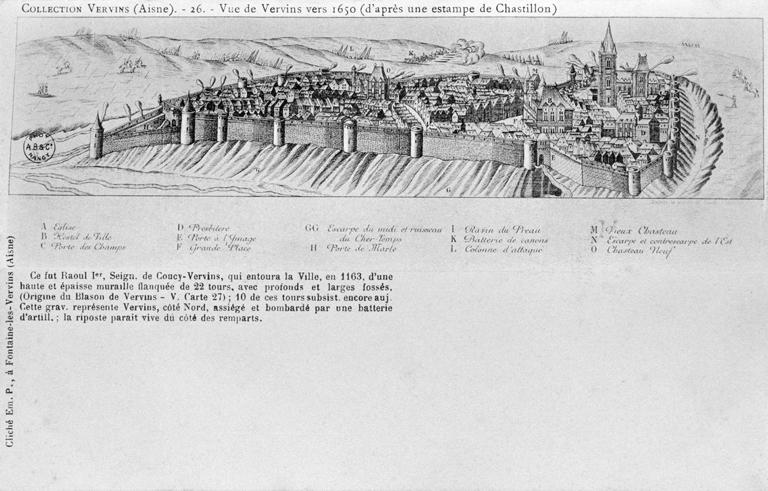 COLLECTION VERVINS (Aisne). - 26. - VUE DE VERVINS VERS 1650 (d'après une estampe de Chastillon)
A.B.&Cie
NANCY
A Eglise
B Hostel de Ville
C Porte des Champs
D Presbitere
E Porte à l'Ymage
F Grande Place
GG Escarpe du midi et ruisseau
du Cher-Temps
H Porte de Marle
I Ravin du Preau
K Batterie de canons
L Colonne d'attaque
M Vieux Chasteau
N Escarpe et contrescarpe de l'Est
O Chasteau Neuf
Ce fut Raoul Ier, Seign. de Coucy-Vervins, qui entoura la Ville, en 1163, d'une
haute et épaisse muraille flanquée de 22 tours, avec profonds et larges fossés.
(Origine du Blason de Vervins - V. Carte 27) ; 10 de ces tours subsist. encore auj.
Cette grav. représente Vervins, côté Nord, assiégé et bombardé par une batterie
d'artill. ; la riposte parait vive du côté des remparts.
Cliché Em. P., à Fontaine-les-Vervins (Aisne)